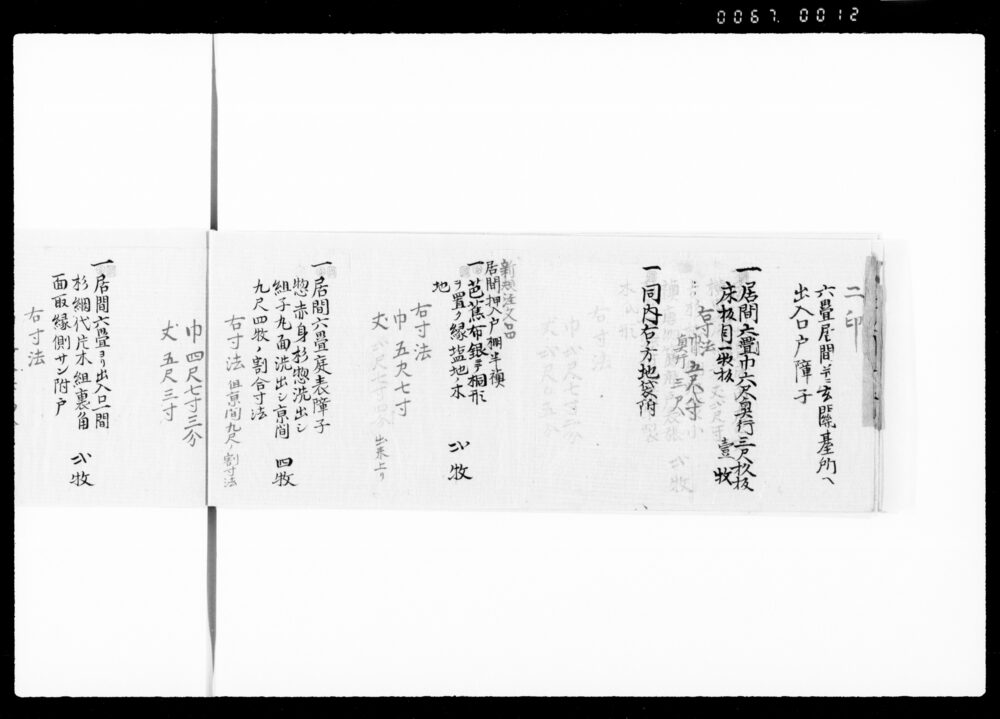 0067. 0012
二印
六畳居間并ニ玄関基所ヘ
出入口戸障子
一居間六畳巾六尺奥行三尺松板
床板目一枚板 壹牧
右寸法 巾五尺八寸
奥行三尺
一同内右ノ方地袋附
新規注文品
居間押入戸棚半襖
一芭蕉布銀テ桐形
ヲ置ク縁塩地ノ木 弐牧
地
右寸法
巾五尺七寸
丈 出来上リ
一居間六畳庭表障子
惣赤身杉惣洗出シ
組子九面洗出シ京間 四牧
九尺四牧ノ割合寸法
右寸法 但京間九尺ノ割寸法
巾四尺七寸三分
丈五尺三寸
一居間六畳ヨリ出入口一間
杉網代片木組裏角 弐牧
面取縁側サン附戸
右寸法